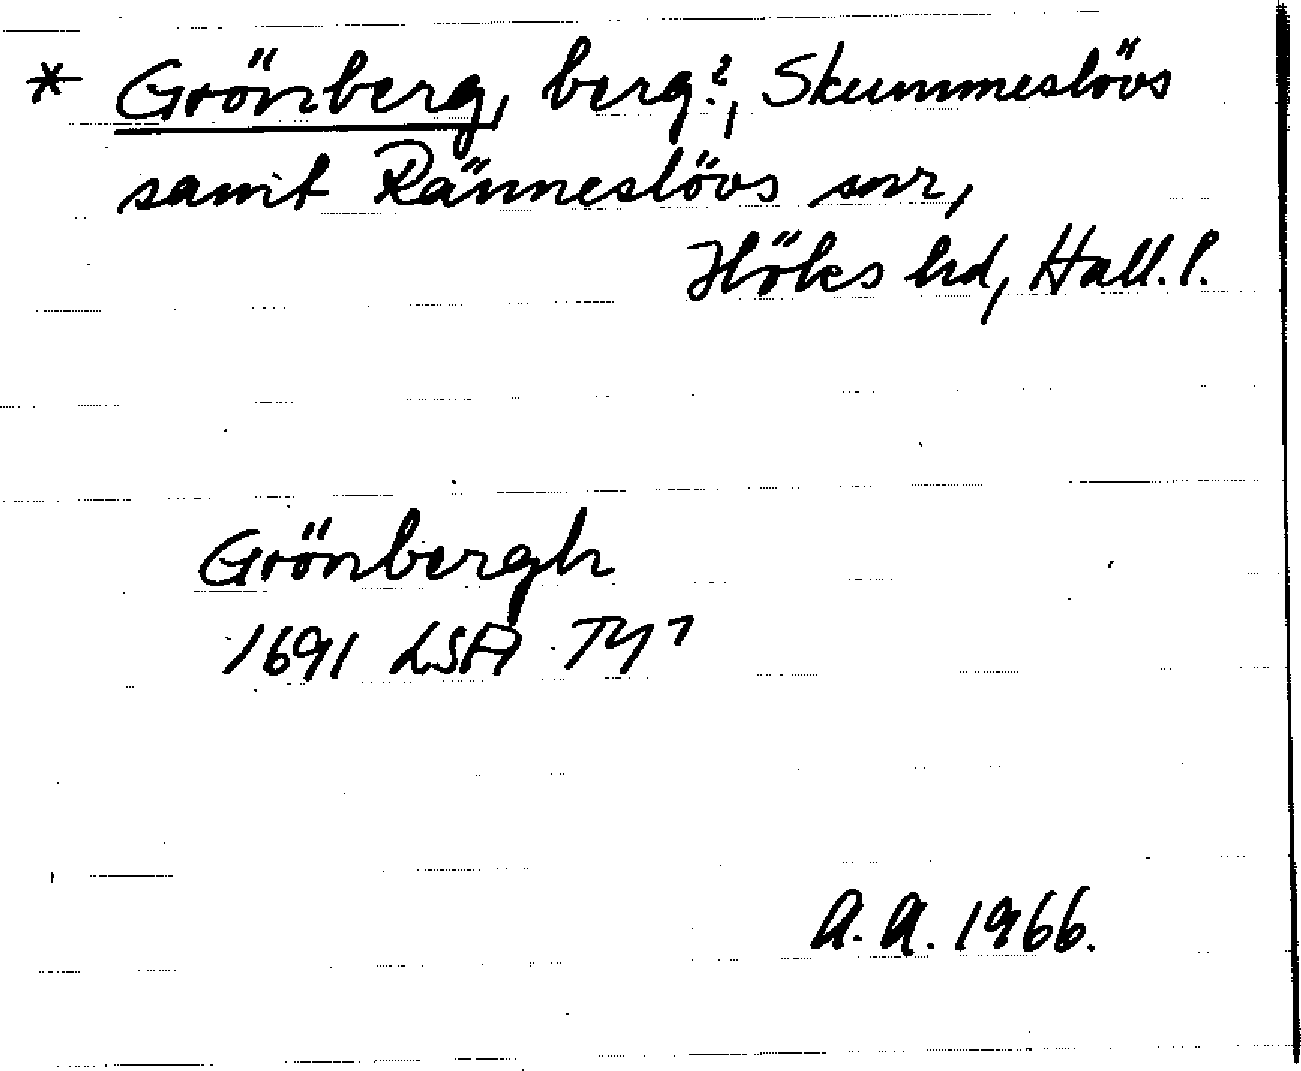 * Grönberg, berg?, Skummeslövs
samt Ränneslövs snr,
Höks hd, Hall. l.
Grönbergh
1691 LSA T4⁷
A. A. 1966.